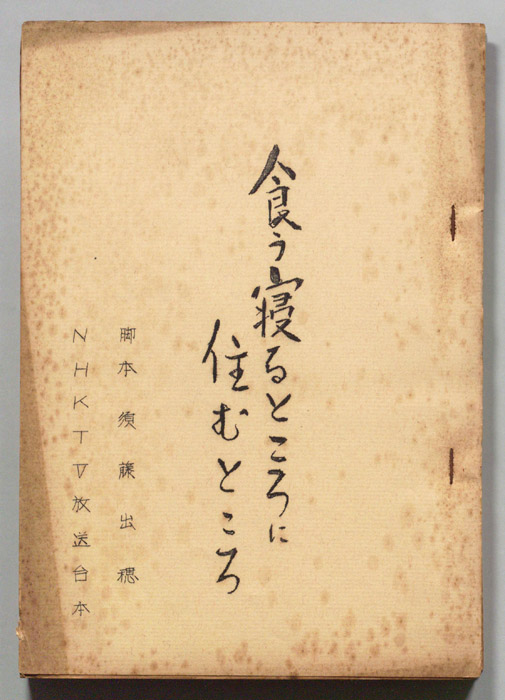 食う寝るところに
住むところ
脚本 須藤出穂
NHKTV放送台本